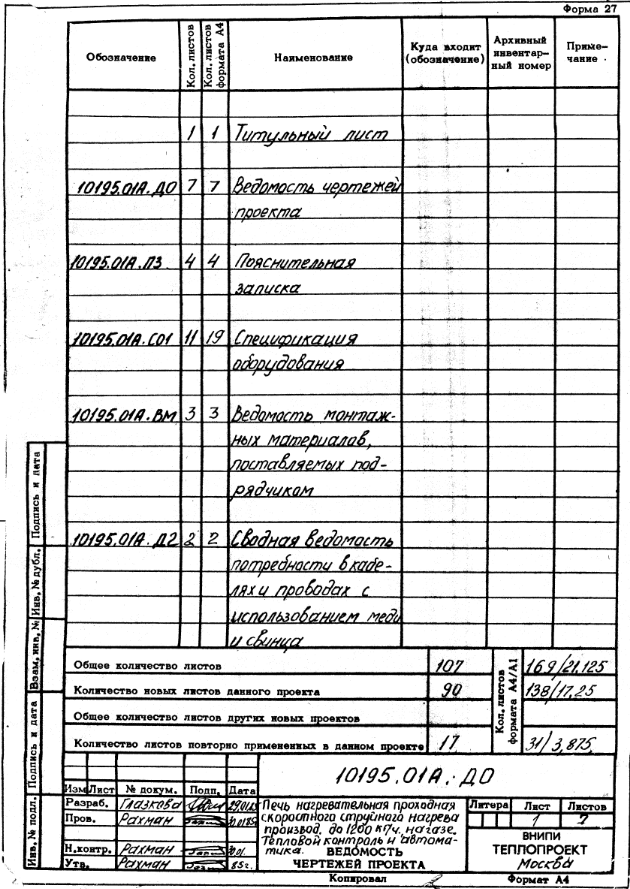 Форма 27
Обозначение Кол. листов Кол. листов формата А4 Наименование Куда входит (обозначение) Архивный инвентар-ный номер Приме-чание
1 1 Титульный лист
10195.01А.ДО 7 7 Ведомость чертежей
проекта
10195.01А.ПЗ 4 4 Пояснительная
записка
10195.01А.СО1 11 19 Спецификация
оборудования
10195.01А.ВМ 3 3 Ведомость монтаж-
ных материалов,
поставляемых под-
рядчиком
10195.01А.Д2 2 2 Сводная ведомость
потребности в кабе-
лях и проводах с
использованием меди
и свинца
Общее количество листов 107 Кол. листов формата А4/А1 169/21,125
Количество новых листов данного проекта 90 138/17,25
Общее количество листов других новых проектов
Количество листов повторно примененных в данном проекте 17 31/3,875
10195.01А.ДО
Изм Лист № докум. Подп. Дата
Разраб. Глазкова
Пров. Рахман
Н.контр. Рахман
Утв. Рахман 85г.
Печь нагревательная проходная
скоростного струйного нагрева
производ. до 1200 кг/ч. на газе.
Тепловой контроль и автома-
тика. ВЕДОМОСТЬ
ЧЕРТЕЖЕЙ ПРОЕКТА
Литера Лист Листов
1 7
ВНИПИ
ТЕПЛОПРОЕКТ
Москва
Копировал Формат А4
Инв. № подл. Подпись и дата Взам. инв. № Инв. № дубл. Подпись и дата